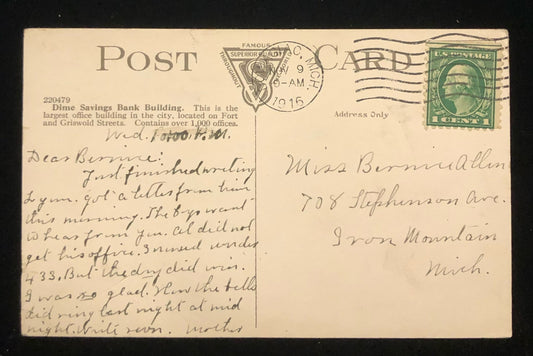 POST CARD
FAMOUS
SUPERIOR QUALITY
THROUGHOUT
MICH.
NOV 9
-AM
1916
U.S. POSTAGE
1 CENT 1
220479
Dime Savings Bank Building. This is the
largest office building in the city, located on Fort
and Griswold Streets. Contains over 1,000 offices.
Address Only
Wed. P.M.
Dear Bernice:
Just finished writing
to you. Got a letter from
this morning. The boys want
to hear from you. Al did not
get his office. missed
433. But the dry did win.
I was so glad. How the bells
did ring last night at mid
night. Write soon. Mother
Miss Bernice Allen
708 Stephenson Ave.
Iron Mountain
Mich.